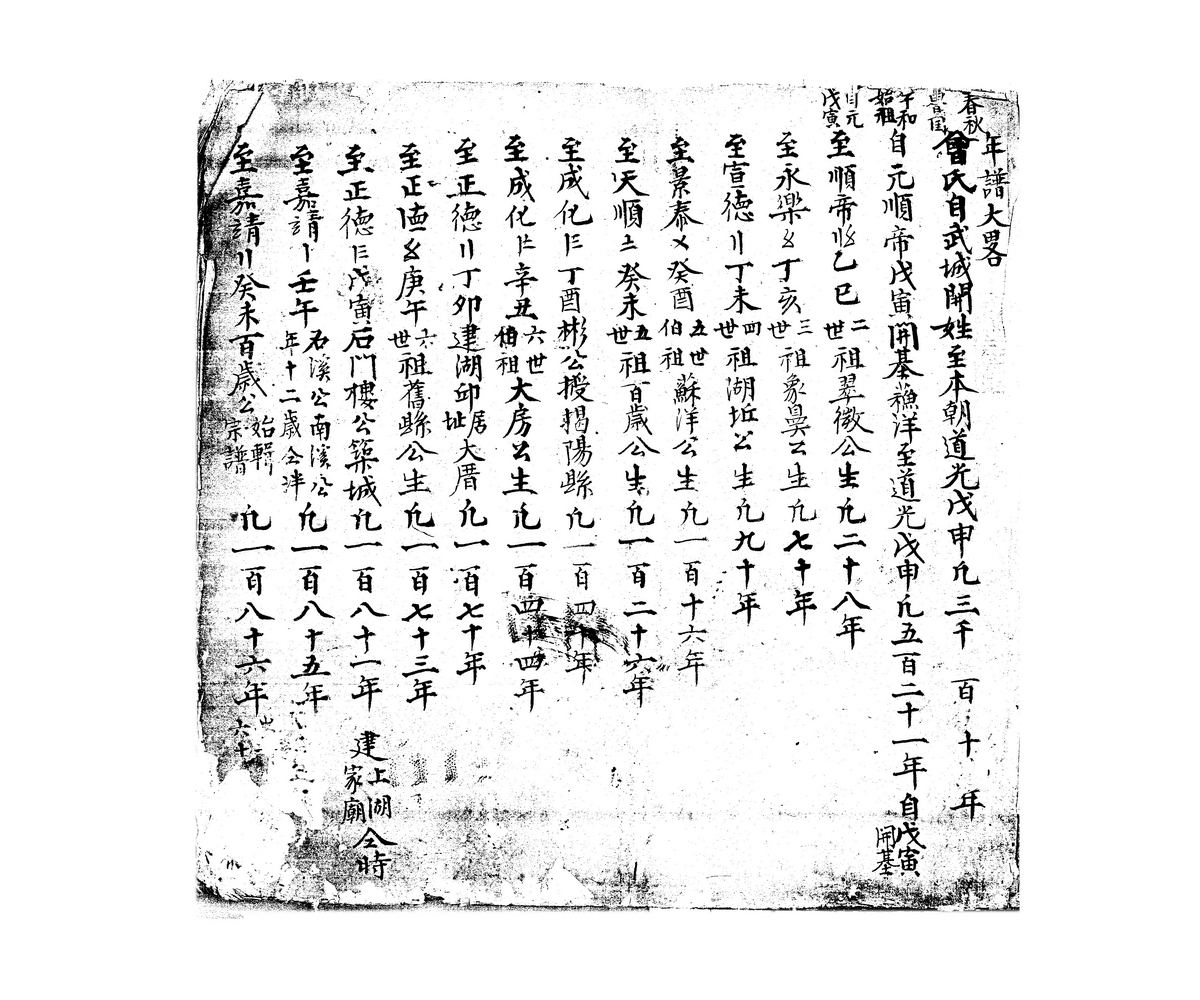 年譜大畧
春秋
曾氏自武城開姓至本朝道光戊申凢三千 百 十 年
始祖
自元順帝戊寅開基漁洋至道光戊申凢五百二十一年自戊寅開基
自元戊寅
至順帝〢〥乙巳二世祖翠微公生凢二十八年
至永樂〥丁亥三世祖象鼻公生凢七十年
至宣德〢丁未四世祖湖坵公生凢九十年
至景泰〤癸酉五世伯祖蘇洋公生凢一百十六年
至天順〧癸未五世祖百歲公生凢一百二十六年
至成化丁酉彬公授揭陽縣凢一百四十年
至成化辛丑六世伯祖大房公生凢一百四十四年
至正德〢丁卯建湖邱居址大厝凢一百七十年
至正德〥庚午六世祖舊縣公生凢一百七十三年
至正德戊寅石門樓公築城凢一百八十一年 建上湖家廟仝時
至嘉靖〡壬午石溪公南溪公年十二歲仝泮凢一百八十五年
至嘉靖〢癸未百歲公始輯宗譜凢一百八十六年